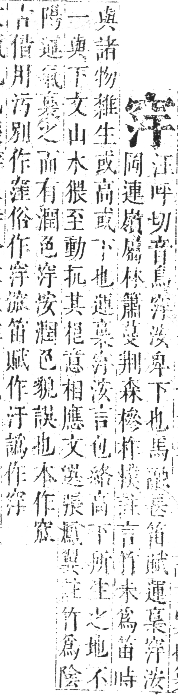 窏
汪呼切音烏窏洝卑下也馬融長笛賦運裛窏洝
岡連嶺屬林簫蔓荆森椮柞樸註言竹未爲笛時
與諸物雜生或高或下也運裛窏洝言包絡高下所生之地不
一與下文山水猥至動扤其根意相應文選張鳳翼註竹爲陰
陽運氣裛之而有潤色窏洝潤色貌誤也本作窊
古借用污別作窪俗作窏笛賦作汙譌作穻